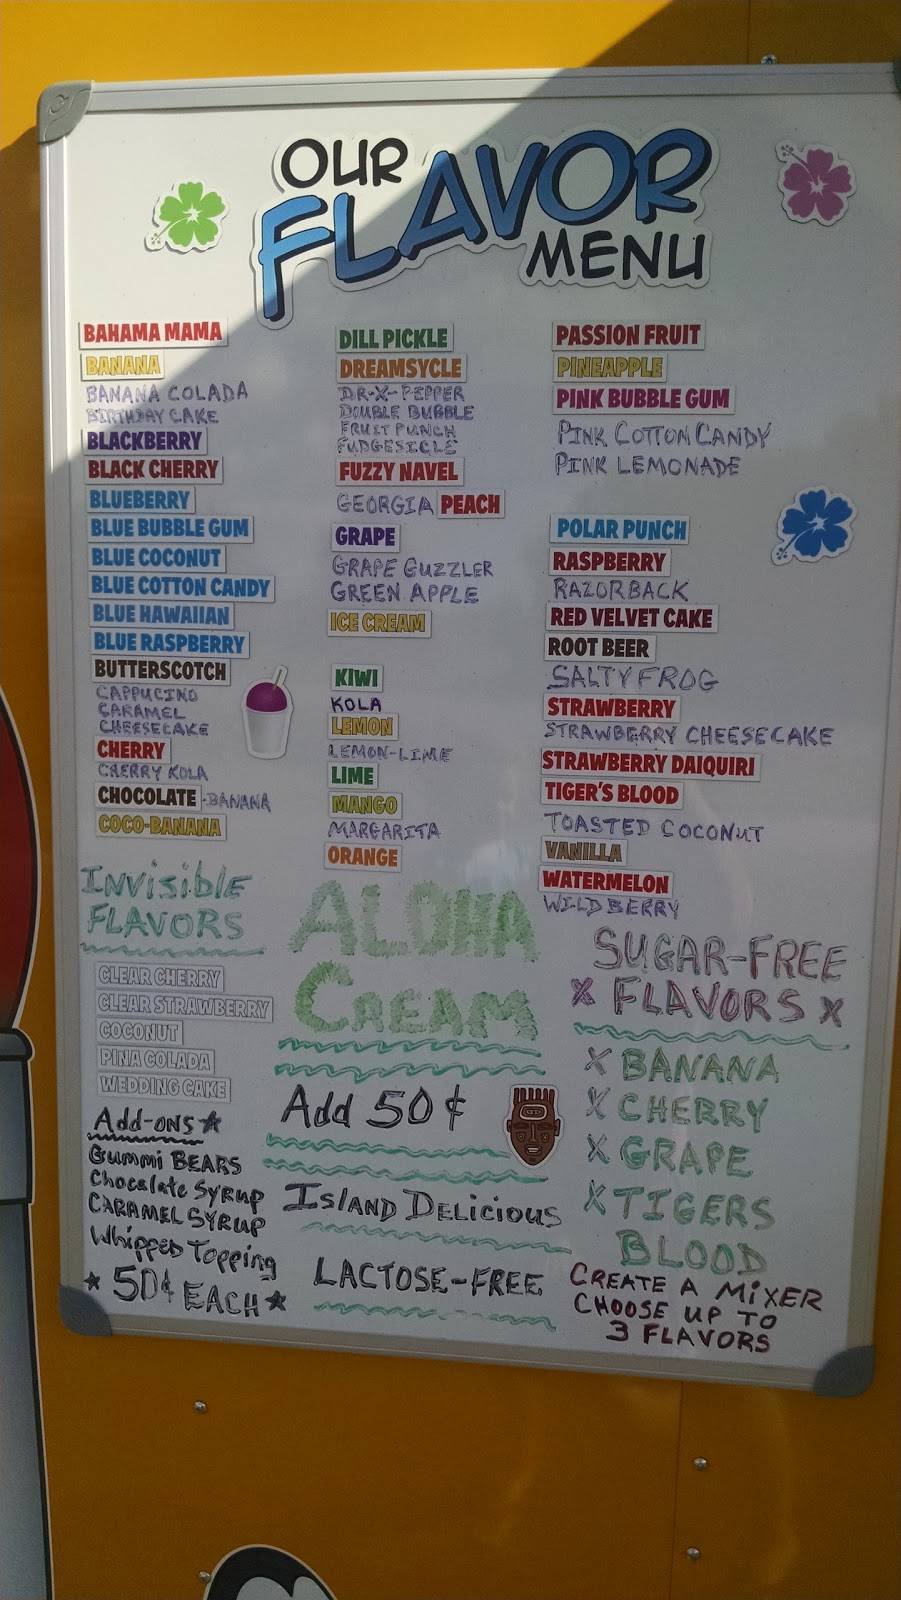 OUR
FLAVOR
MENU
BAHAMA MAMA
BANANA
BANANA COLADA
BIRTHDAY CAKE
BLACKBERRY
BLACK CHERRY
BLUEBERRY
BLUE BUBBLE GUM
BLUE COCONUT
BLUE COTTON CANDY
BLUE HAWAIIAN
BLUE RASPBERRY
BUTTERSCOTCH
CAPPUCINO
CARAMEL
CHEESECAKE
CHERRY
CHERRY KOLA
CHOCOLATE-BANANA
COCO-BANANA
DILL PICKLE
DREAMSYCLE
DR-X-PEPPER
DOUBLE BUBBLE
FRUIT PUNCH
FUDGESICLE
FUZZY NAVEL
GEORGIA PEACH
GRAPE
GRAPE GUZZLER
GREEN APPLE
ICE CREAM
KIWI
KOLA
LEMON
LEMON-LIME
LIME
MANGO
MARGARITA
ORANGE
PASSION FRUIT
PINEAPPLE
PINK BUBBLE GUM
PINK COTTON CANDY
PINK LEMONADE
POLAR PUNCH
RASPBERRY
RAZORBACK
RED VELVET CAKE
ROOT BEER
SALTY FROG
STRAWBERRY
STRAWBERRY CHEESECAKE
STRAWBERRY DAIQUIRI
TIGER'S BLOOD
TOASTED COCONUT
VANILLA
WATERMELON
WILD BERRY
INVISIBLE
FLAVORS
CLEAR CHERRY
CLEAR STRAWBERRY
COCONUT
PINA COLADA
WEDDING CAKE
Add-ONS
Gummi BEARS
Chocolate Syrup
CARAMEL SYRUP
Whipped Topping
50¢ EACH
ALOHA
CREAM
Add 50¢
ISLAND DELICIOUS
LACTOSE-FREE
SUGAR-FREE
X FLAVORS X
X BANANA
X CHERRY
X GRAPE
X TIGERS
BLOOD
CREATE A MIXER
CHOOSE UP TO
3 FLAVORS